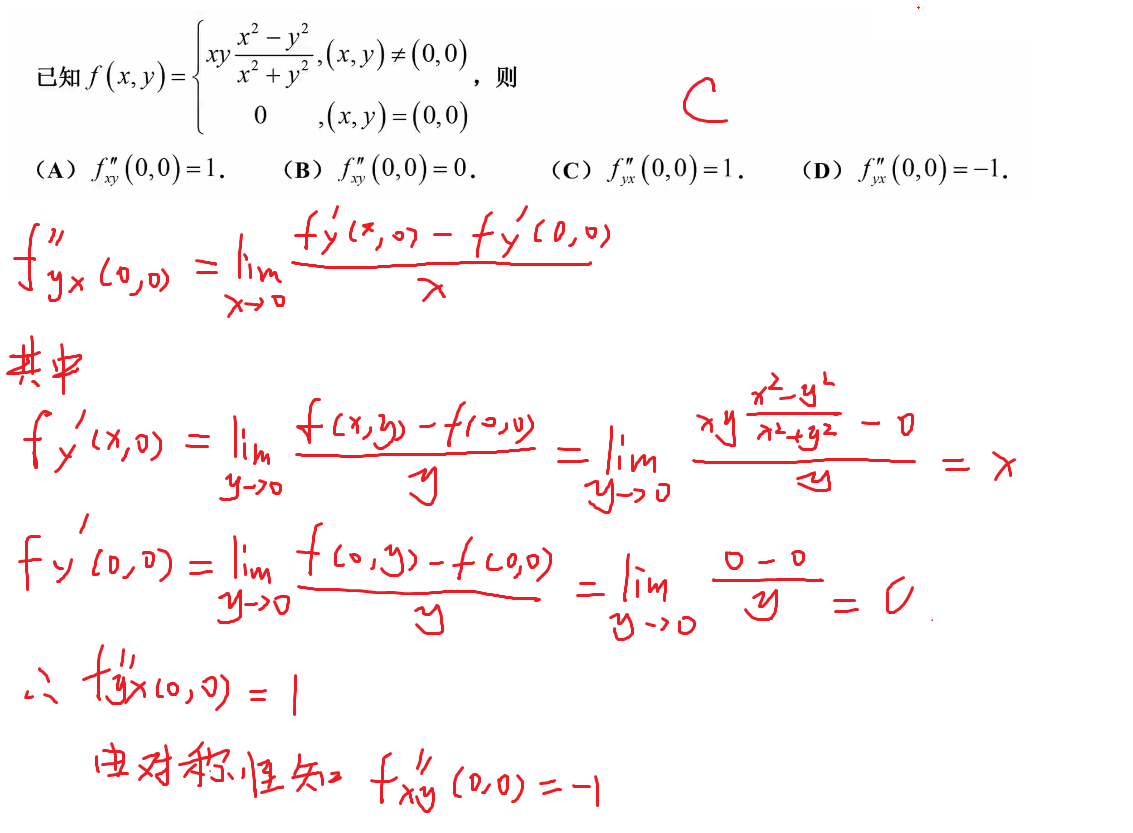 已知 f(x,y)={ xy (x²−y²)/(x²+y²), (x,y)≠(0,0)
0 ,(x,y)=(0,0) ,则
C
(A) f″xy(0,0)=1. (B) f″xy(0,0)=0. (C) f″yx(0,0)=1. (D) f″yx(0,0)=−1.
f″yx(0,0) = lim x→0 (fy′(x,0) − fy′(0,0))/x
其中
fy′(x,0) = lim y→0 (f(x,y)−f(0,0))/y = lim y→0 (xy (x²−y²)/(x²+y²) − 0)/y = x
fy′(0,0) = lim y→0 (f(0,y)−f(0,0))/y = lim y→0 (0−0)/y = 0
∴ f″yx(0,0) = 1
由对称性知 f″xy(0,0) = −1